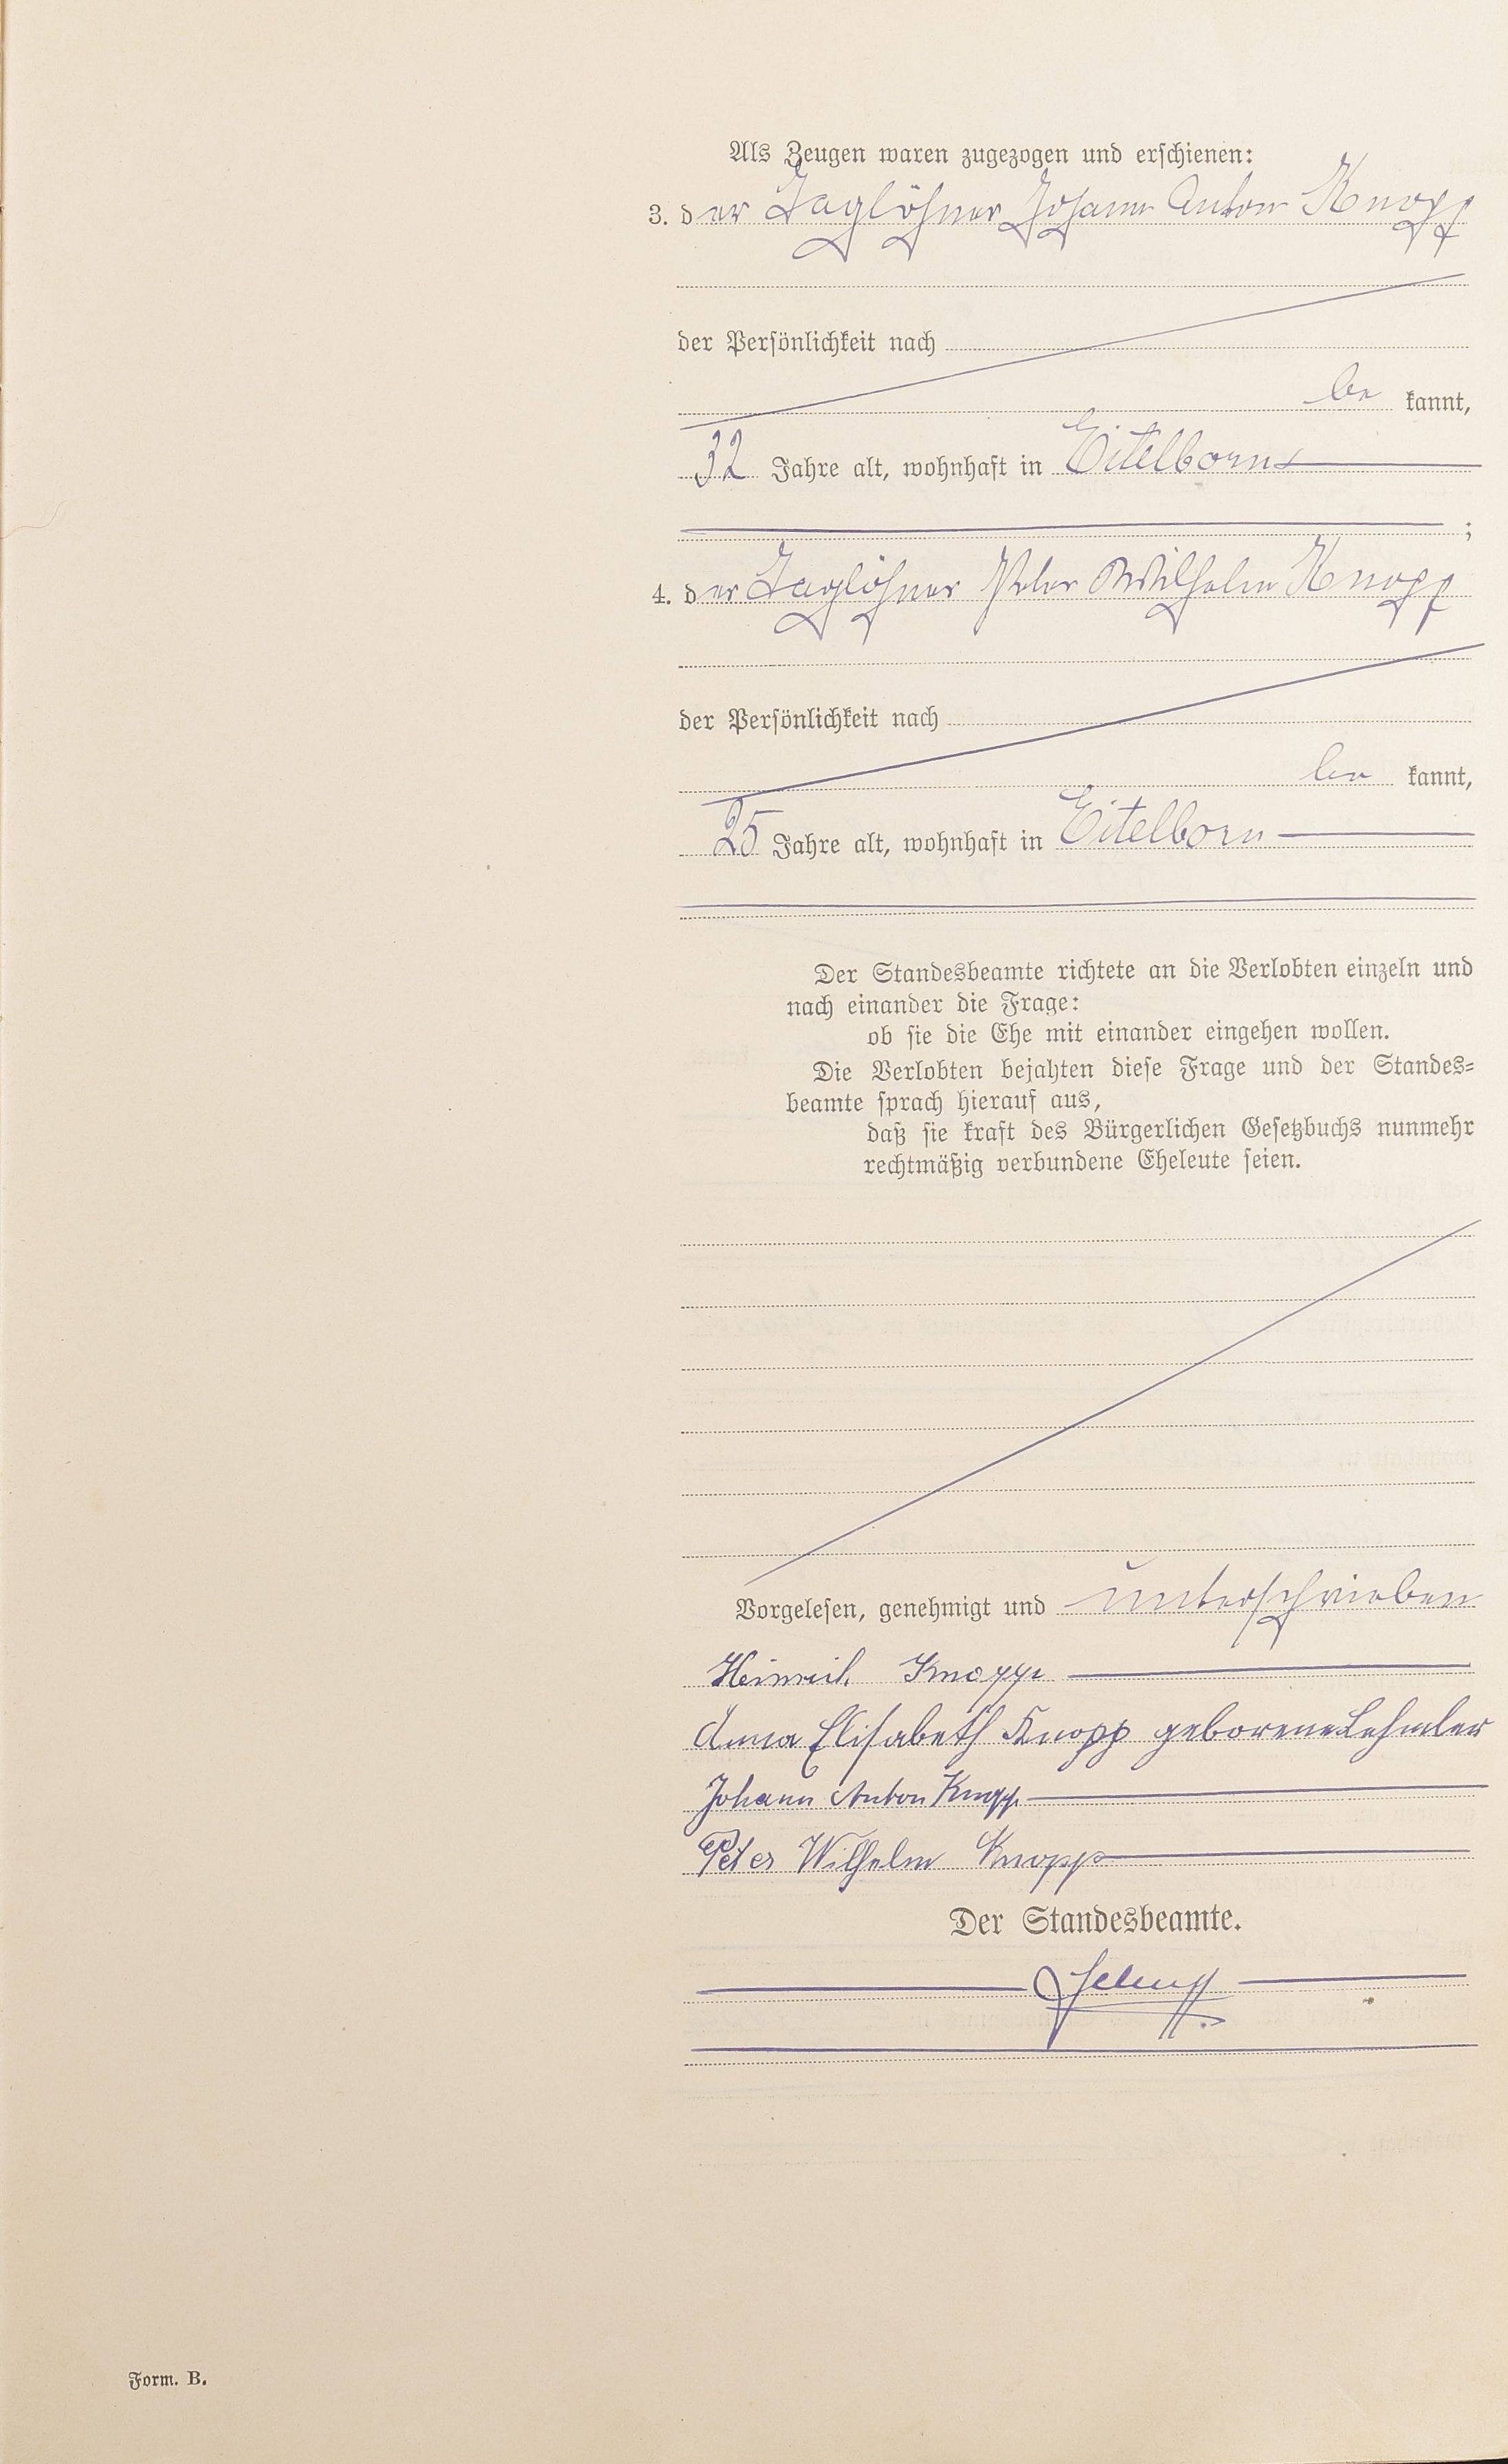 Als Zeugen waren zugezogen und erschienen:
3. der Taglöhner Johann Anton Knopp
der Persönlichkeit nach
be kannt,
32 Jahre alt, wohnhaft in Eitelborn
;
4. der Taglöhner Peter Wilhelm Knopp
der Persönlichkeit nach
be kannt,
25 Jahre alt, wohnhaft in Eitelborn
Der Standesbeamte richtete an die Verlobten einzeln und
nach einander die Frage:
ob sie die Ehe mit einander eingehen wollen.
Die Verlobten bejahten diese Frage und der Standes-
beamte sprach hierauf aus,
daß sie kraft des Bürgerlichen Gesetzbuchs nunmehr
rechtmäßig verbundene Eheleute seien.
Vorgelesen, genehmigt und unterschrieben
Heinrich Knopp
Anna Elisabeth Knopp geborene Lehmler
Johann Anton Knopp
Peter Wilhelm Knopp
Der Standesbeamte.
Form. B.